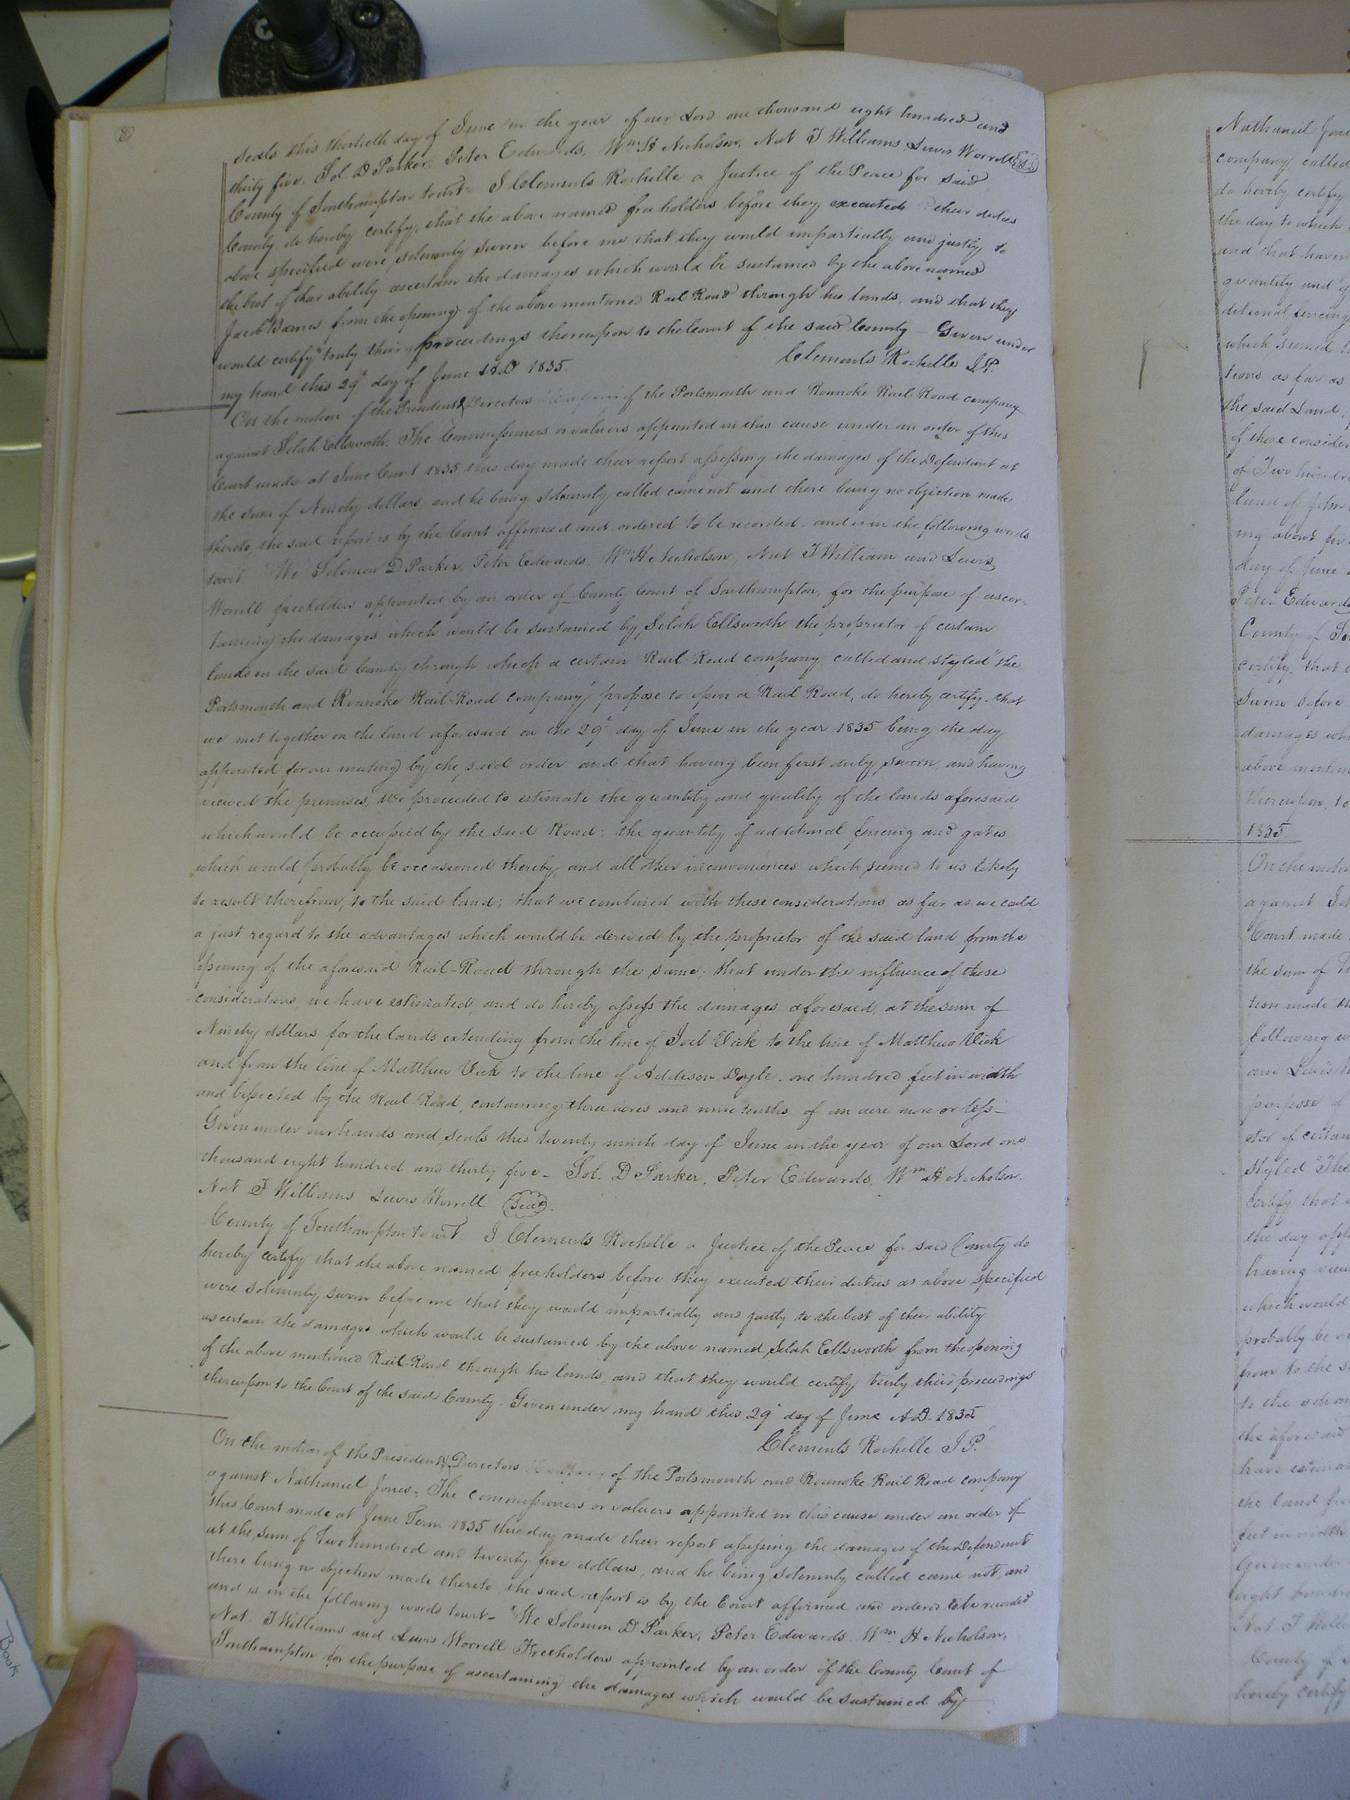 8
seals this thirtieth day of June in the year of our Lord one thousand eight hundred and
thirty five. Sol. D Parker, Peter Edwards, Wm H Nicholson, Nat T Williams Lewis Worrell
County of Southampton towit: I Clements Rochelle a Justice of the Peace for said
County do hereby certify, that the above named freeholders before they executed their duties
above specified were solemnly sworn before me, that they would impartially and justly to
the best of their ability ascertain the damages which would be sustained by the above named
Jacob Barnes from the opening of the above mentioned Rail Road through his lands, and that they
would certify truly their proceedings thereupon to the Court of the said County – Given under
my hand this 29th day of June A.D 1835.
Clements Rochelle J.P.
On the motion of the President & Directors of the Portsmouth and Roanoke Rail Road company
against Selah Ellsworth. The Commissioners or valuers appointed in this cause under an order of this
Court made at June Court 1835 this day made their report assessing the damages of the Defendant at
the sum of Ninety dollars, and he being solemnly called came not and there being no objection made
thereto, the said report is by the Court affirmed and ordered to be recorded and is in the following words
towit "We Solomon D Parker, Peter Edwards, Wm H Nicholson, Nat T William and Lewis
Worrell freeholders appointed by an order of County Court of Southampton, for the purpose of ascer-
taining the damages which would be sustained by Selah Ellsworth the proprietor of certain
lands in the said County through which a certain Rail-Road company called and styled "the
Portsmouth and Roanoke Rail-Road company" propose to open a Rail Road, do hereby certify that
we met together on the land aforesaid on the 29th day of June in the year 1835 being the day
appointed for our meeting by the said order and that having been first duly sworn, and having
viewed the premises, We proceeded to estimate the quantity and quality of the lands aforesaid
which would be occupied by the said Road; the quantity of additional fencing and gates
which would probably be occasioned thereby and all other inconveniences which seemed to us likely
to result therefrom, to the said land; that we combined with these considerations as far as we could
a just regard to the advantages which would be derived by the proprietor of the said land from the
opening of the aforesaid Rail-Road through the same; that under the influence of these
considerations we have estimated, and do hereby assess the damages aforesaid, at the sum of
Ninety dollars for the lands extending from the line of Joel Vick to the line of Matthew Vick
and from the line of Matthew Vick to the line of Addison Doyle, one hundred feet in width
and bisected by the Rail-Road, containing three acres and nine tenths of an acre more or less –
Given under our hands and seals this twenty ninth day of June in the year of our Lord one
thousand eight hundred and thirty five – Sol. D Parker, Peter Edwards, Wm H Nicholson.
Nat T Williams Lewis Worrell (Seal).
County of Southampton to wit: I Clements Rochelle a Justice of the Peace for said County do
hereby certify that the above named freeholders before they executed their duties as above specified
were solemnly sworn before me that they would impartially and justly to the best of their ability
ascertain the damages which would be sustained by the above named Selah Ellsworth from the opening
of the above mentioned Rail-Road through his lands, and that they would certify truly their proceedings
thereupon to the Court of the said County – Given under my hand this 29th day of June A.D. 1835
Clements Rochelle J.P.
On the motion of the President & Directors of the Portsmouth and Roanoke Rail Road company
against Nathaniel Jones. The commissioners or valuers appointed in this cause under an order of
this Court made at June Term 1835 this day made their report assessing the damages of the Defendant
at the sum of Two hundred and twenty five dollars, and he being solemnly called came not and
there being no objection made thereto the said report is by the Court affirmed and ordered to be recorded
and is in the following words towit – "We Solomon D Parker, Peter Edwards Wm H Nicholson,
Nat. T Williams and Lewis Worrell Freeholders appointed by an order of the County Court of
Southampton for the purpose of ascertaining the damages which would be sustained by
Nathaniel
company called
do hereby certify
the day to which
and that
quantity and
ditional fencing
which seemed
tions as far as
the said Land,
of these
of Two hundred
day of June
Peter Edwards
County of
certify, that
sworn before
damages
above
thereupon, to
1835
On the motion
against
Court made
the sum of
following
and Lewis
purpose of
etor of certain
styled "The
certify that
the day
having
which would
probably be
from to the
to the
the aforesaid
have
the land
feet in width
Given under
eight hundred
Nat T
County
hereby certify
Book